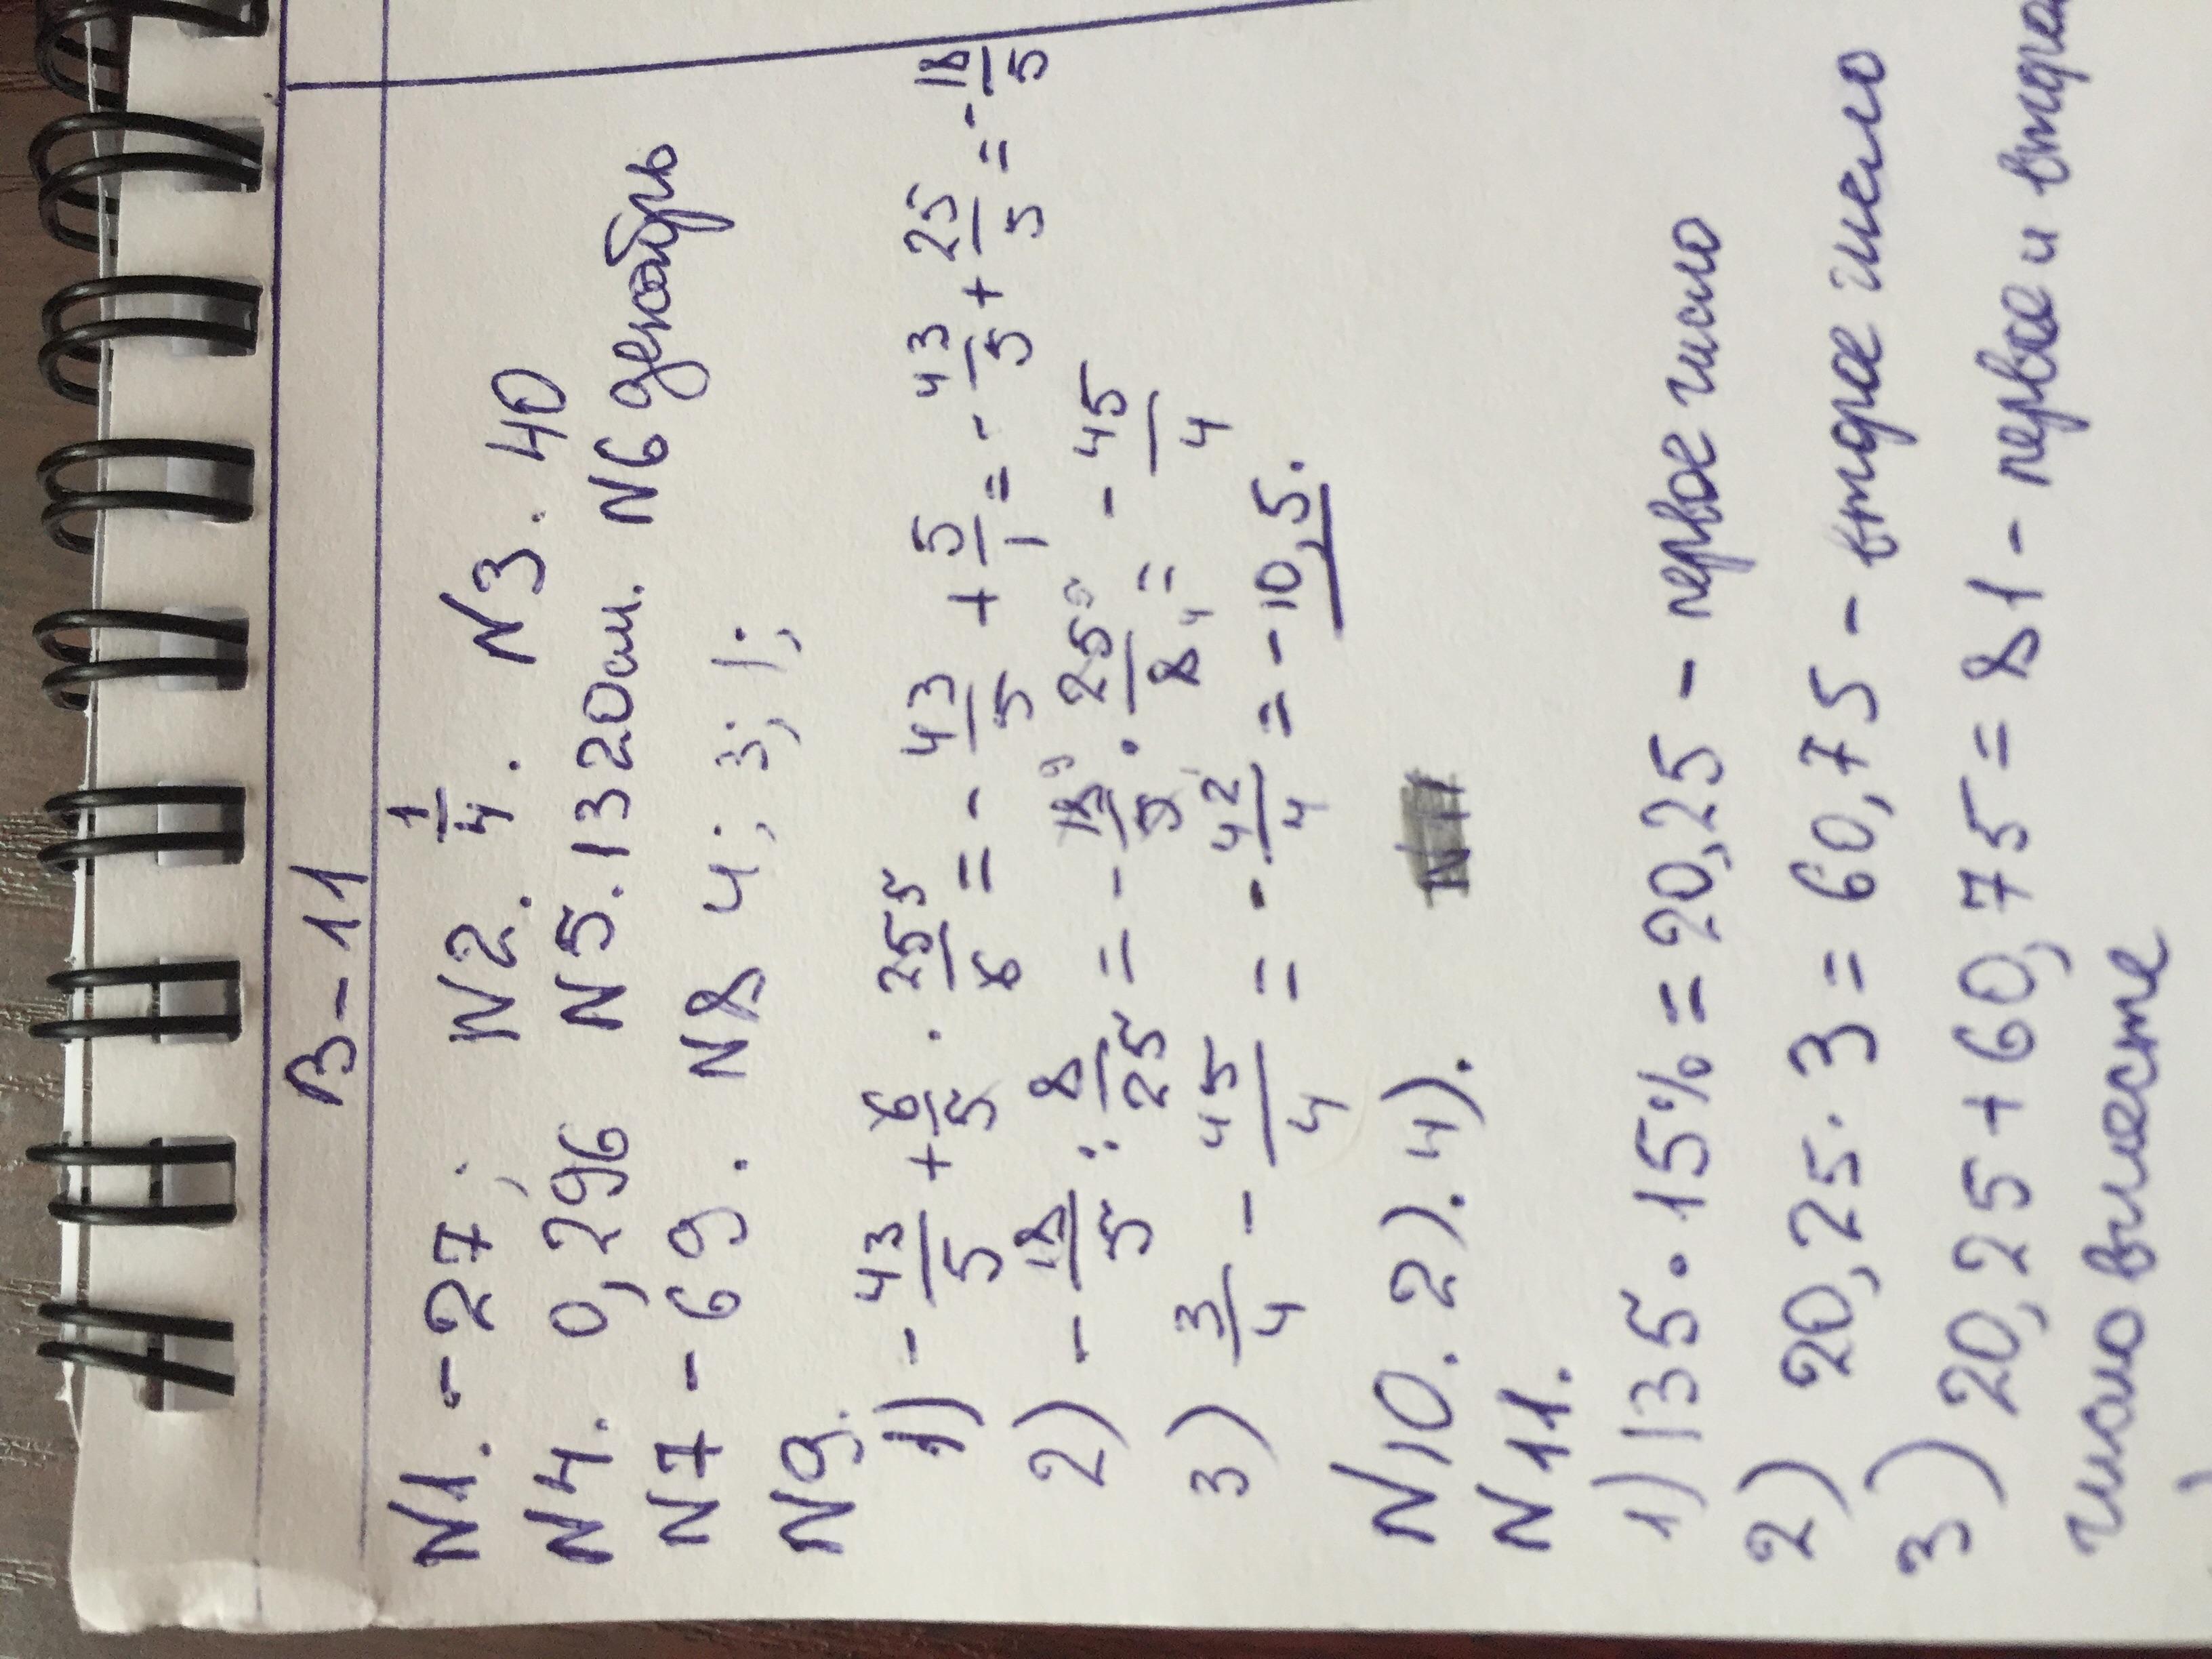 В-11
N1. -27; N2. 1/4. N3. 40
N4. 0,296 N5. 1320см. N6 декабрь
N7 -69. N8 4; 3; 1;
N9.
1) - 43/5 + 6/5 · 25 5/6 = - 43/5 + 5/1 = - 43/5 + 25/5 = - 18/5
2) - 18/5 : 8/25 = - 18 9/5 1 · 25 5/8 4 = - 45/4
3) 3/4 - 45/4 = - 42/4 = -10,5.
N10. 2). 4). N11
N11.
1) 135 · 15% = 20,25 - первое число
2) 20,25 · 3 = 60,75 - второе число
3) 20,25 + 60,75 = 81 - первое и второе
число вместе